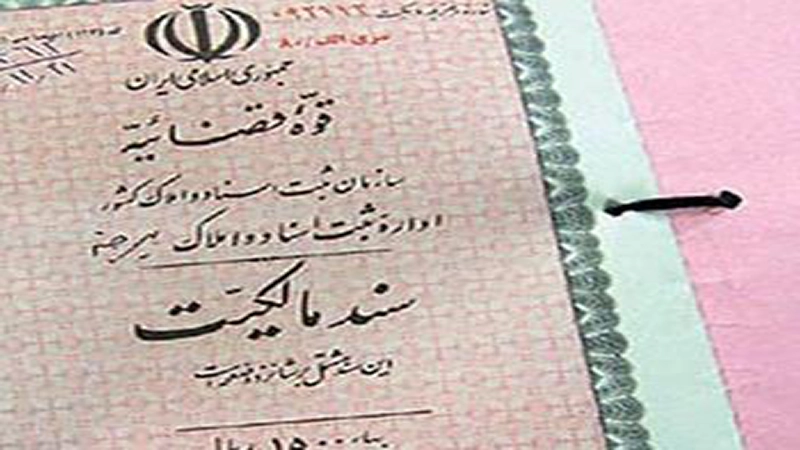 ۰۹۲۱۱۳
سری الف/۸۰
جمهوری اسلامی ایران
قوّهٔ قضائیّه
سازمان ثبت اسناد و املاک کشور
ادارهٔ ثبت اسناد و املاک بیرجند
سند مالکیّت
این سند مشتمل بر شانزده صفحه است
بهاء ۱۵۰۰ ریال